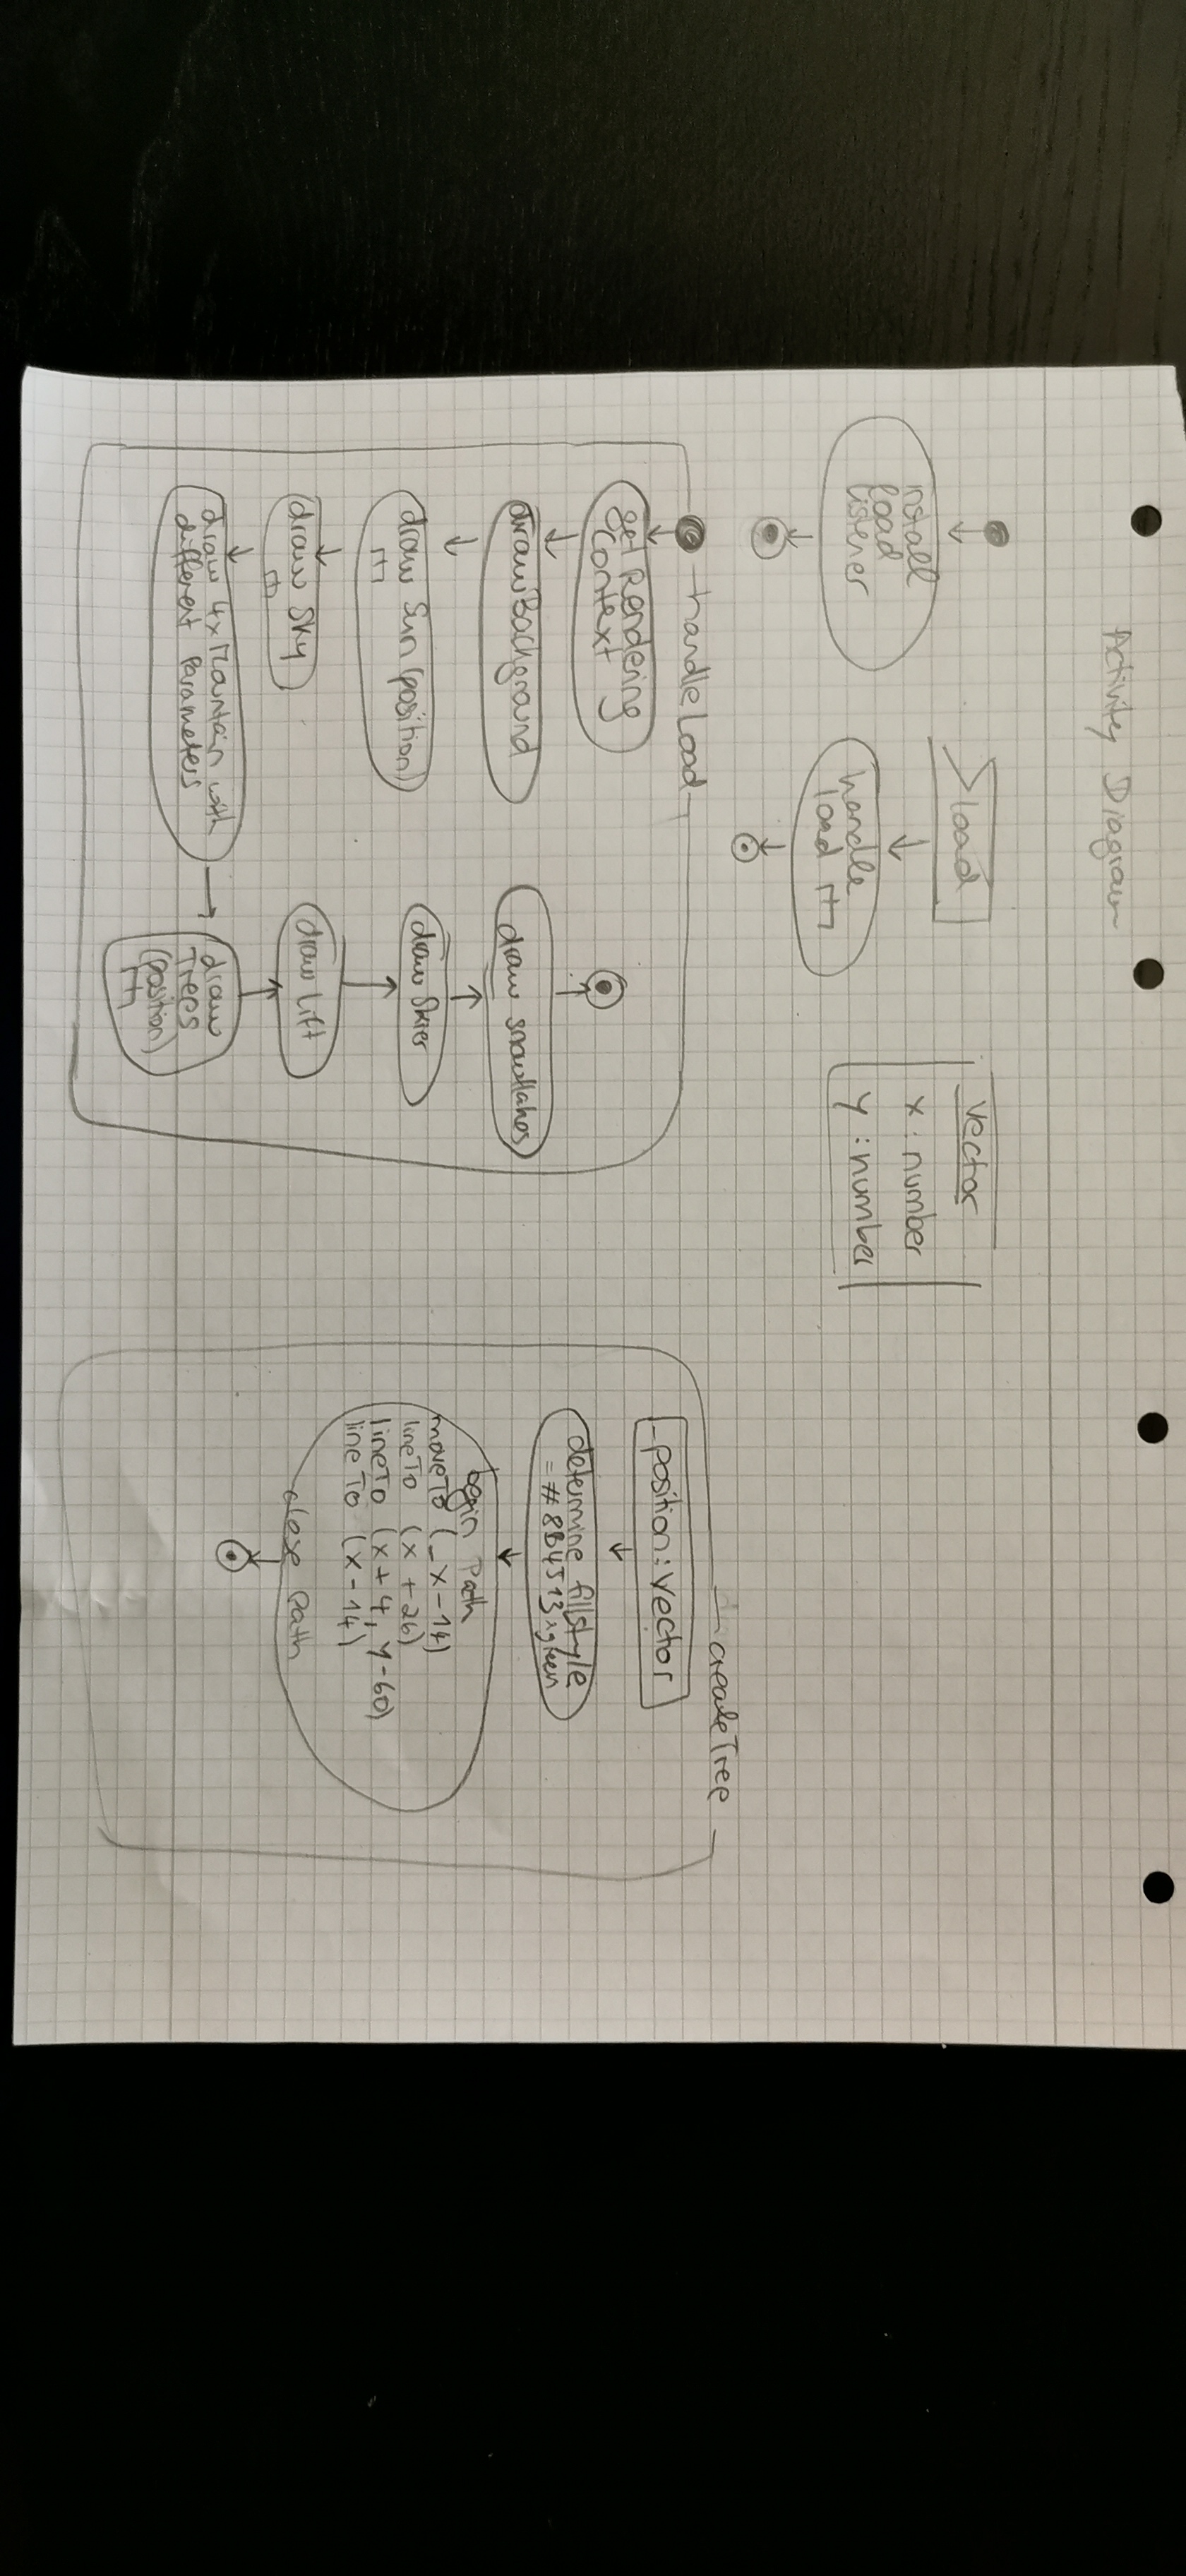 Activity Diagram
install
load
listener
load
handle
load
Vector
x : number
y : number
handleLoad
get Rendering
Context
draw Background
draw Sun (position)
draw Sky
draw 4x Mountain with
different Parameters
draw
Trees
(position)
draw Lift
draw Skier
draw snowflakes
createTree
_position : Vector
determine fillstyle
= #8B4513, green
begin Path
moveTo (_x-14)
lineTo (x + 26)
lineTo (x + 4, y-60)
lineTo (x-14)
close path